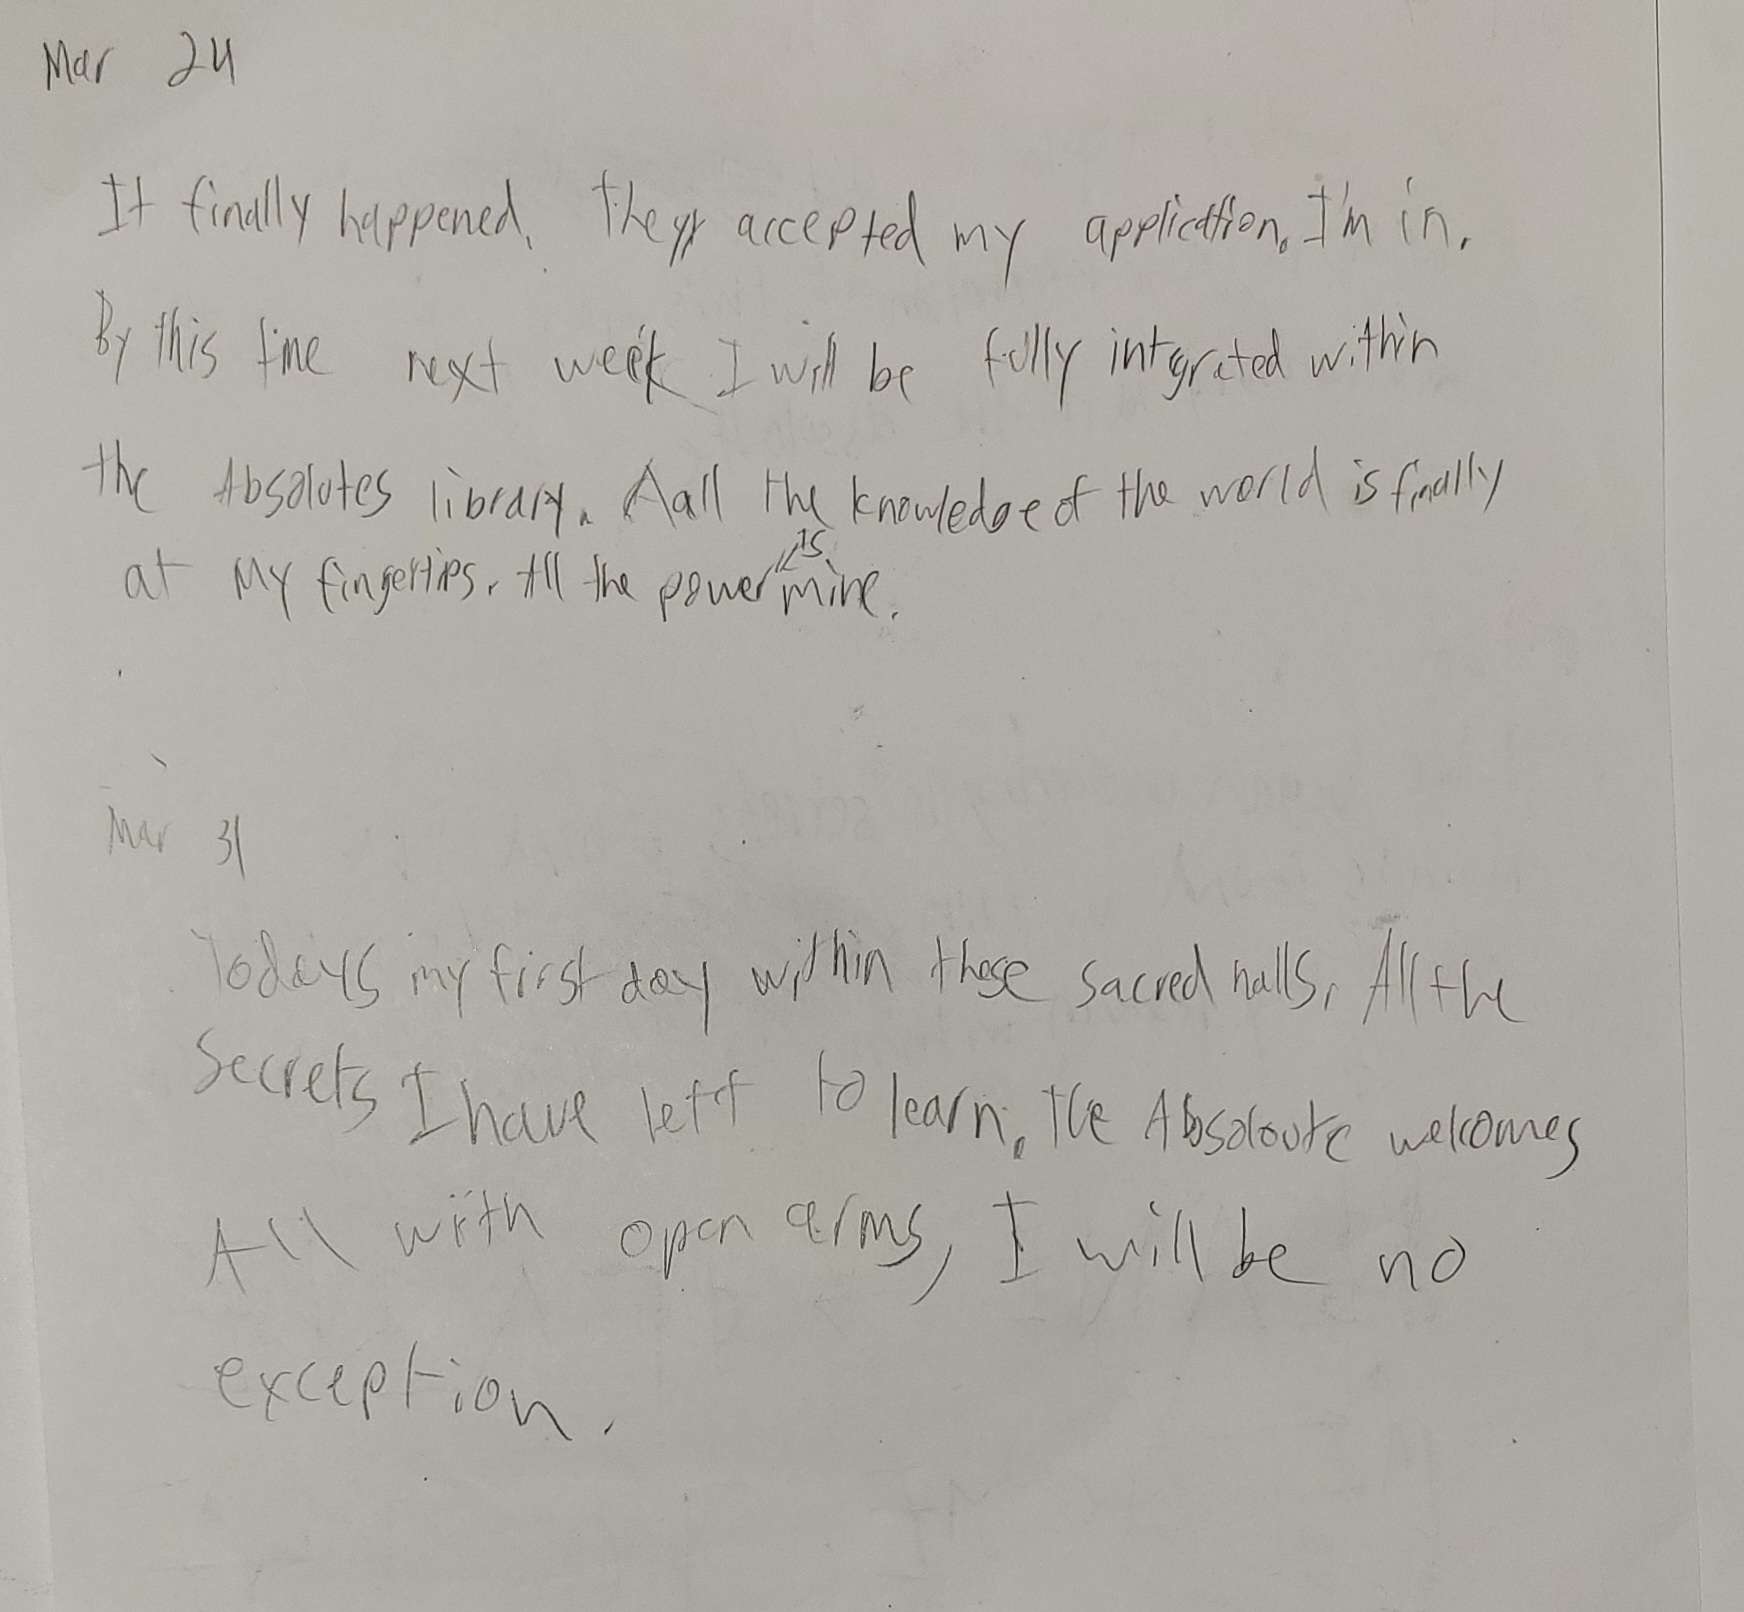 Mar 24
It finally happened. They accepted my application. I'm in.
By this time next week I will be fully intgrated within
the Absolutes library. Aall the knowledge of the world is finally
at my fingertips. All the power is mine.
Mar 31
Todays my first day within these sacred halls. All the
Secrets I have left to learn. The Absoloute welcomes
All with open arms, I will be no
exception.